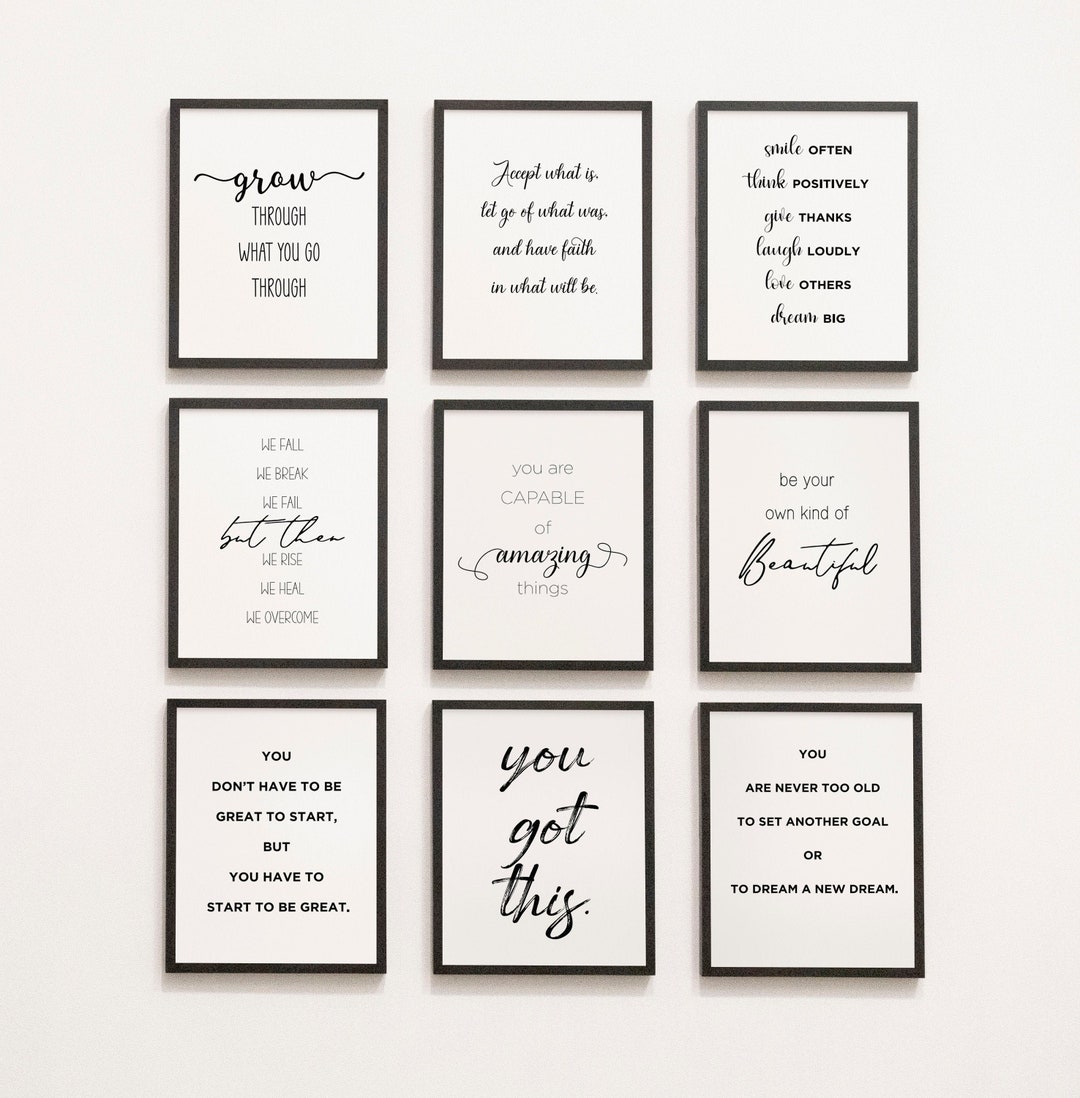 grow
THROUGH
WHAT YOU GO
THROUGH
Accept what is,
let go of what was,
and have faith
in what will be.
smile OFTEN
think POSITIVELY
give THANKS
laugh LOUDLY
love OTHERS
dream BIG
WE FALL
WE BREAK
WE FAIL
but then
WE RISE
WE HEAL
WE OVERCOME
you are
CAPABLE
of
amazing
things
be your
own kind of
Beautiful
YOU
DON'T HAVE TO BE
GREAT TO START,
BUT
YOU HAVE TO
START TO BE GREAT.
you
got
this.
YOU
ARE NEVER TOO OLD
TO SET ANOTHER GOAL
OR
TO DREAM A NEW DREAM.